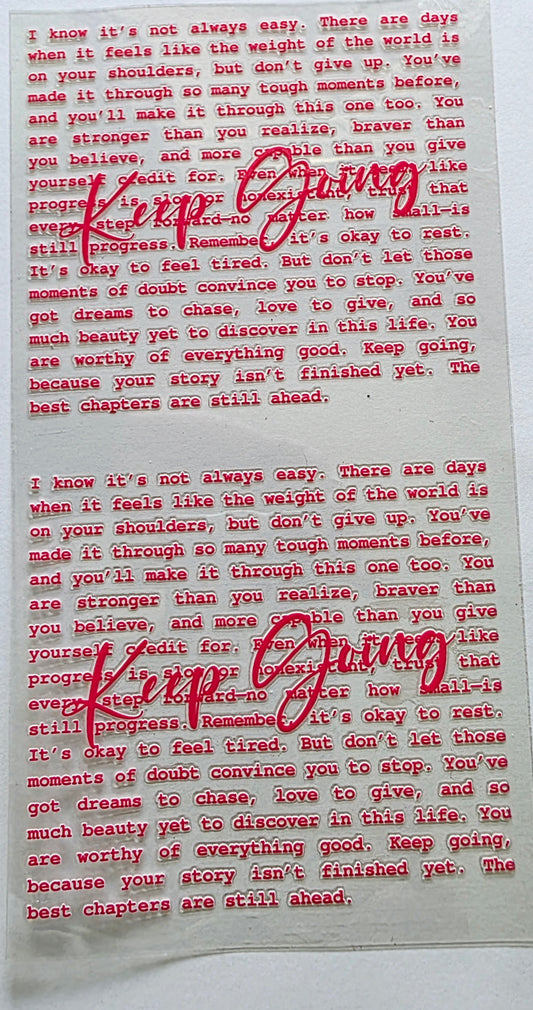 I know it's not always easy. There are days
when it feels like the weight of the world is
on your shoulders, but don't give up. You've
made it through so many tough moments before,
and you'll make it through this one too. You
are stronger than you realize, braver than
you believe, and more capable than you give
yourself credit for. Even when it feels like
progress is slow or nonexistent, trust that
every step forward—no matter how small—is
Keep Going
still progress. Remember, it's okay to rest.
It's okay to feel tired. But don't let those
moments of doubt convince you to stop. You've
got dreams to chase, love to give, and so
much beauty yet to discover in this life. You
are worthy of everything good. Keep going,
because your story isn't finished yet. The
best chapters are still ahead.
I know it's not always easy. There are days
when it feels like the weight of the world is
on your shoulders, but don't give up. You've
made it through so many tough moments before,
and you'll make it through this one too. You
are stronger than you realize, braver than
you believe, and more capable than you give
yourself credit for. Even when it feels like
progress is slow or nonexistent, trust that
every step forward—no matter how small—is
Keep Going
still progress. Remember, it's okay to rest.
It's okay to feel tired. But don't let those
moments of doubt convince you to stop. You've
got dreams to chase, love to give, and so
much beauty yet to discover in this life. You
are worthy of everything good. Keep going,
because your story isn't finished yet. The
best chapters are still ahead.